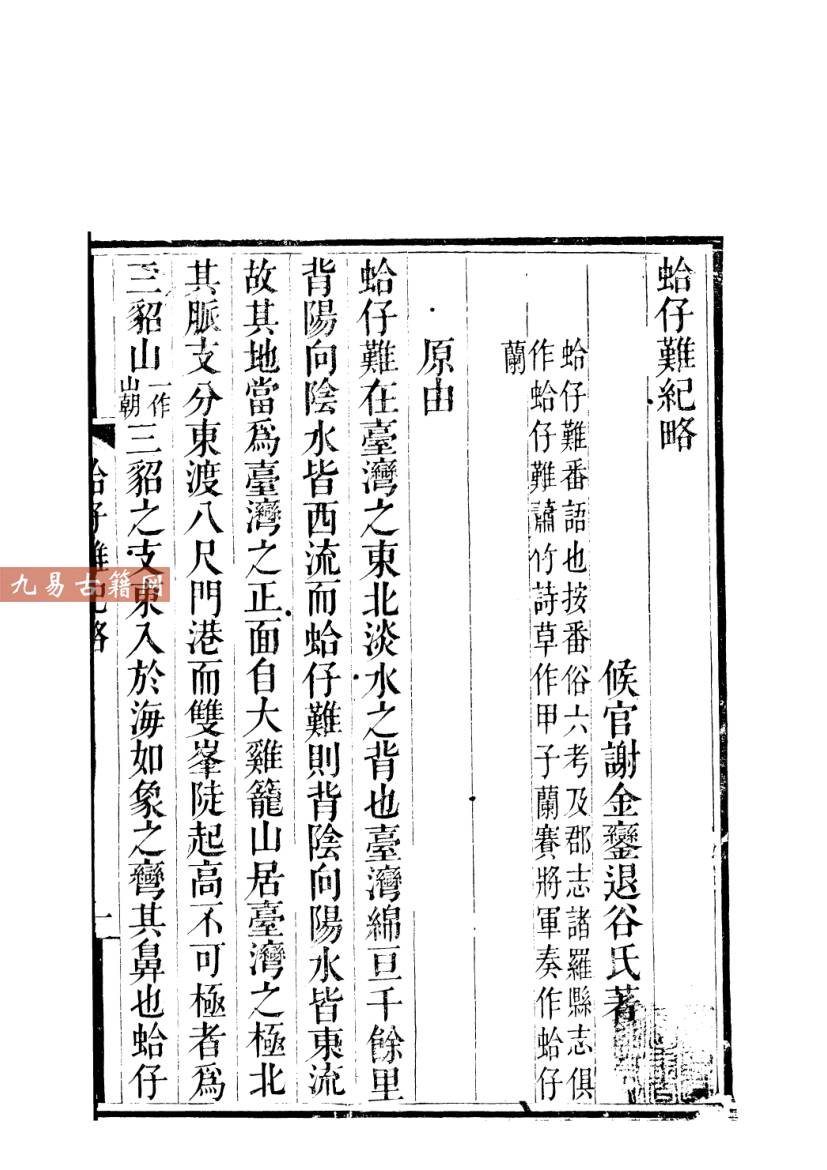 蛤仔難紀略
候官謝金鑾退谷氏著
蛤仔難番語也按番俗六考及郡志諸羅縣志俱
作蛤仔難蕭竹詩草作甲子蘭賽將軍奏作蛤仔
蘭
原由
蛤仔難在臺灣之東北淡水之背也臺灣綿亘千餘里
背陽向陰水皆西流而蛤仔難則背陰向陽水皆東流
故其地當爲臺灣之正面自大雞籠山居臺灣之極北
其脈支分東渡八尺門港而雙峯陡起高不可極者爲
三貂山一作山朝三貂之支東入於海如象之彎其鼻也蛤仔
蛤仔難紀略
一
九易古籍网